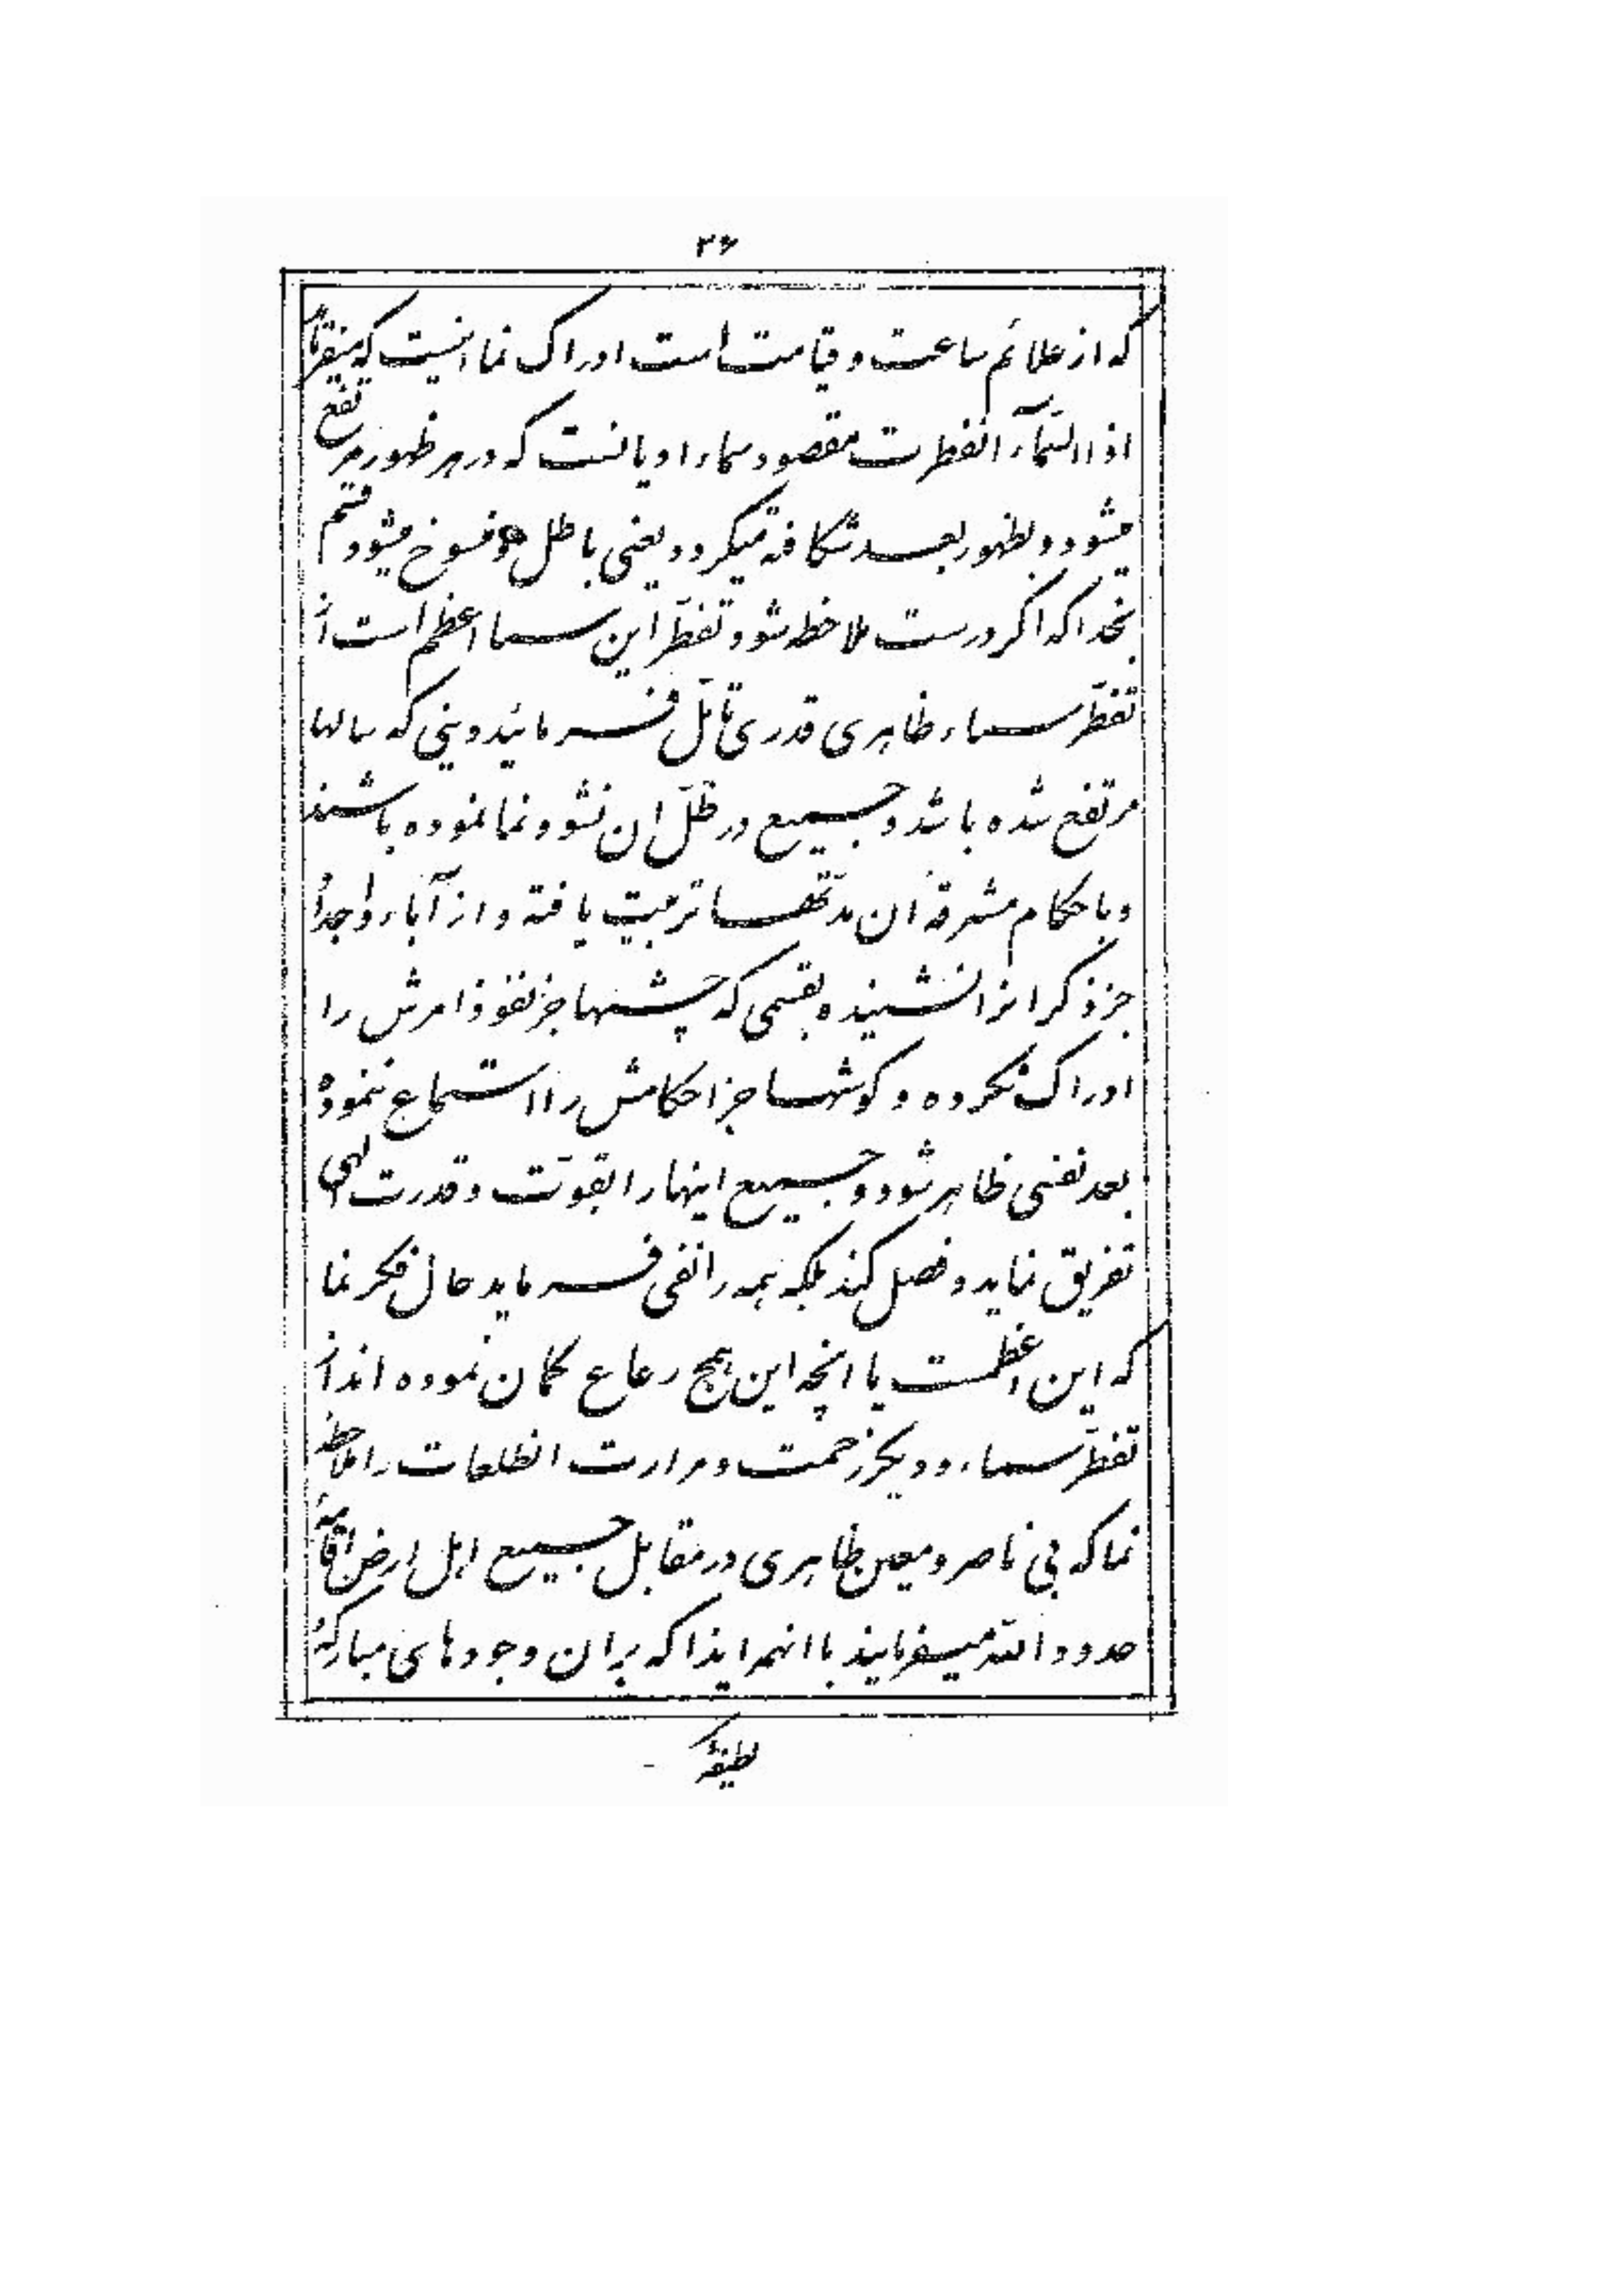 ۳۶
که از علائم ساعت و قیامت است ادراک نما اینست که میفرماید
اذا السّمآء انفطرت مقصود سماء ادیانست که در هر ظهور مرتفع
میشود و بظهور بعد شکافته میگردد یعنی باطل و منسوخ میشود قسم
بخدا که اگر درست ملاحظه شود تفطّر این سما اعظم است از
تفطّر سماء ظاهری قدری تأمّل فرمائید دینی که سالها
مرتفع شده باشد و جمیع در ظلّ ان نشو و نما نموده باشند
و باحکام مشرقهٔ ان مدّتها تربیت یافته و از آباء و اجداد
جز ذکر انرا نشنیده بقسمی که چشمها جز نفوذ امرش را
ادراک نکرده و گوشها جز احکامش را استماع ننموده
بعد نفسی ظاهر شود و جمیع اینها را بقوّت و قدرت الهی
تفریق نماید و فصل کند بلکه همه را نفی فرماید حال فکر نما
که این اعظمست یا انچه این همج رعاع گمان نموده اند از
تفطّر سماء و دیگر زحمت و مرارت انطلعات را ملاحظه
نما که بی ناصر و معین ظاهری در مقابل جمیع اهل ارض اقامهٔ
حدود اللّه میفرمایند با انهمه ایذا که بر ان وجودهای مبارکهٔ
لطیفه